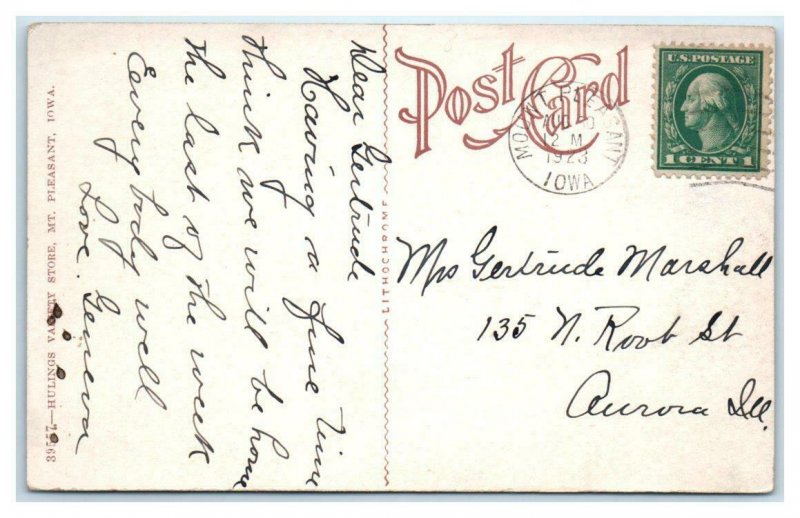 Post Card
U.S. POSTAGE
1 CENT 1
MOUNT PLEASANT
AUG
12 M
1923
IOWA
Dear Gertrude
Having a fine time
think we will be home
the last of the week
Everybody well
Love. Geneva
Mrs Gertrude Marshall
135 N. Root St
Aurora Ill.
LITHOCHROME
HULINGS VARIETY STORE, MT. PLEASANT, IOWA.